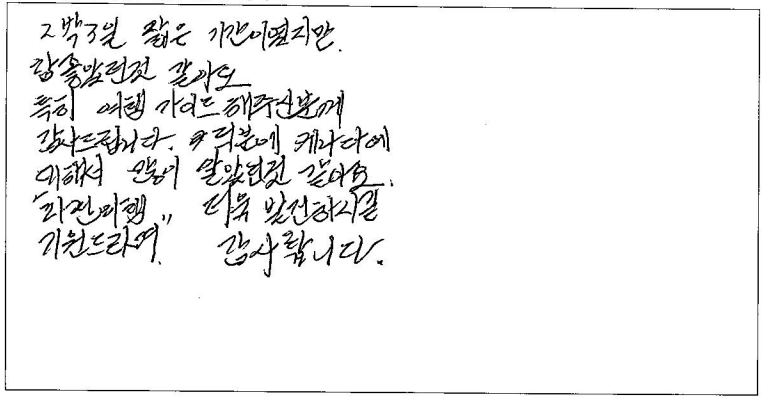 2박3일 짧은 기간이였지만.
참 좋았던것 같아요
특히 여행 가이드 해주신분께
감사드립니다. 덕분에 캐나다에
대해서 많이 알았던것 같아요.
더욱 발전하시길
기원드리며. 감사합니다.